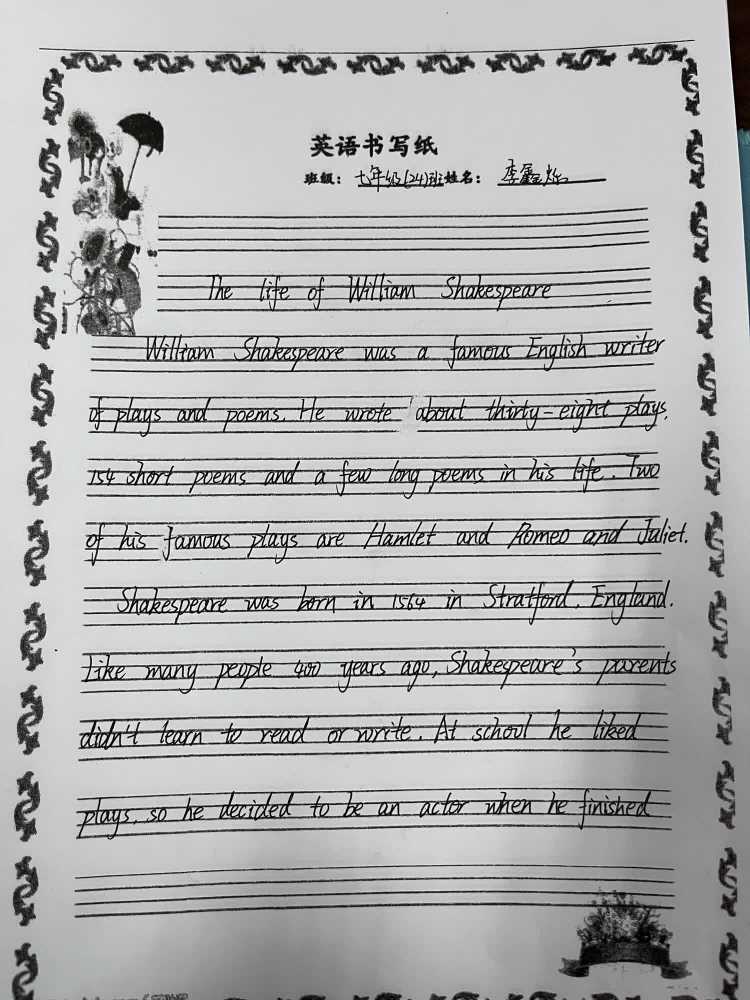 英语书写纸
班级：七年级(24)班姓名：李鑫烁
The life of William Shakespeare
William Shakespeare was a famous English writer
of plays and poems. He wrote about thirty-eight plays,
154 short poems and a few long poems in his life. Two
of his famous plays are Hamlet and Romeo and Juliet.
Shakespeare was born in 1564 in Stratford, England.
Like many people 400 years ago, Shakespeare's parents
didn't learn to read or write. At school he liked
plays, so he decided to be an actor when he finished